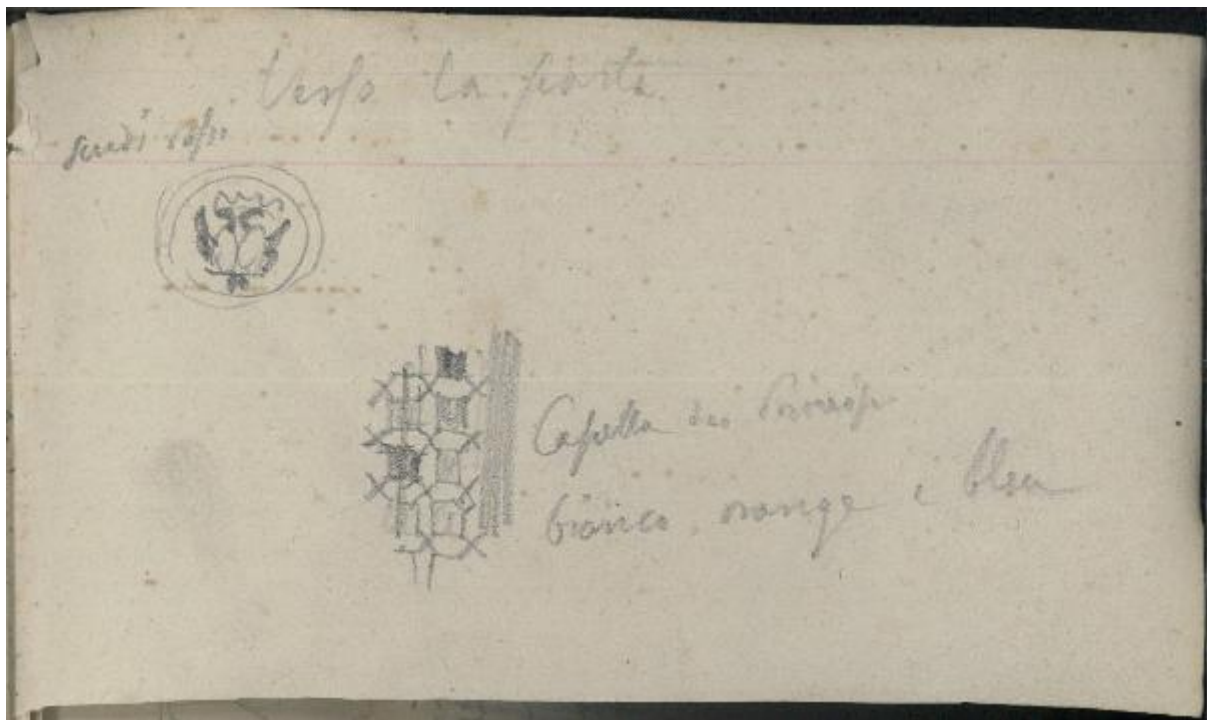 Verso la porta
scudi rossi
Capella dei Principi
bianco, orange e bleu